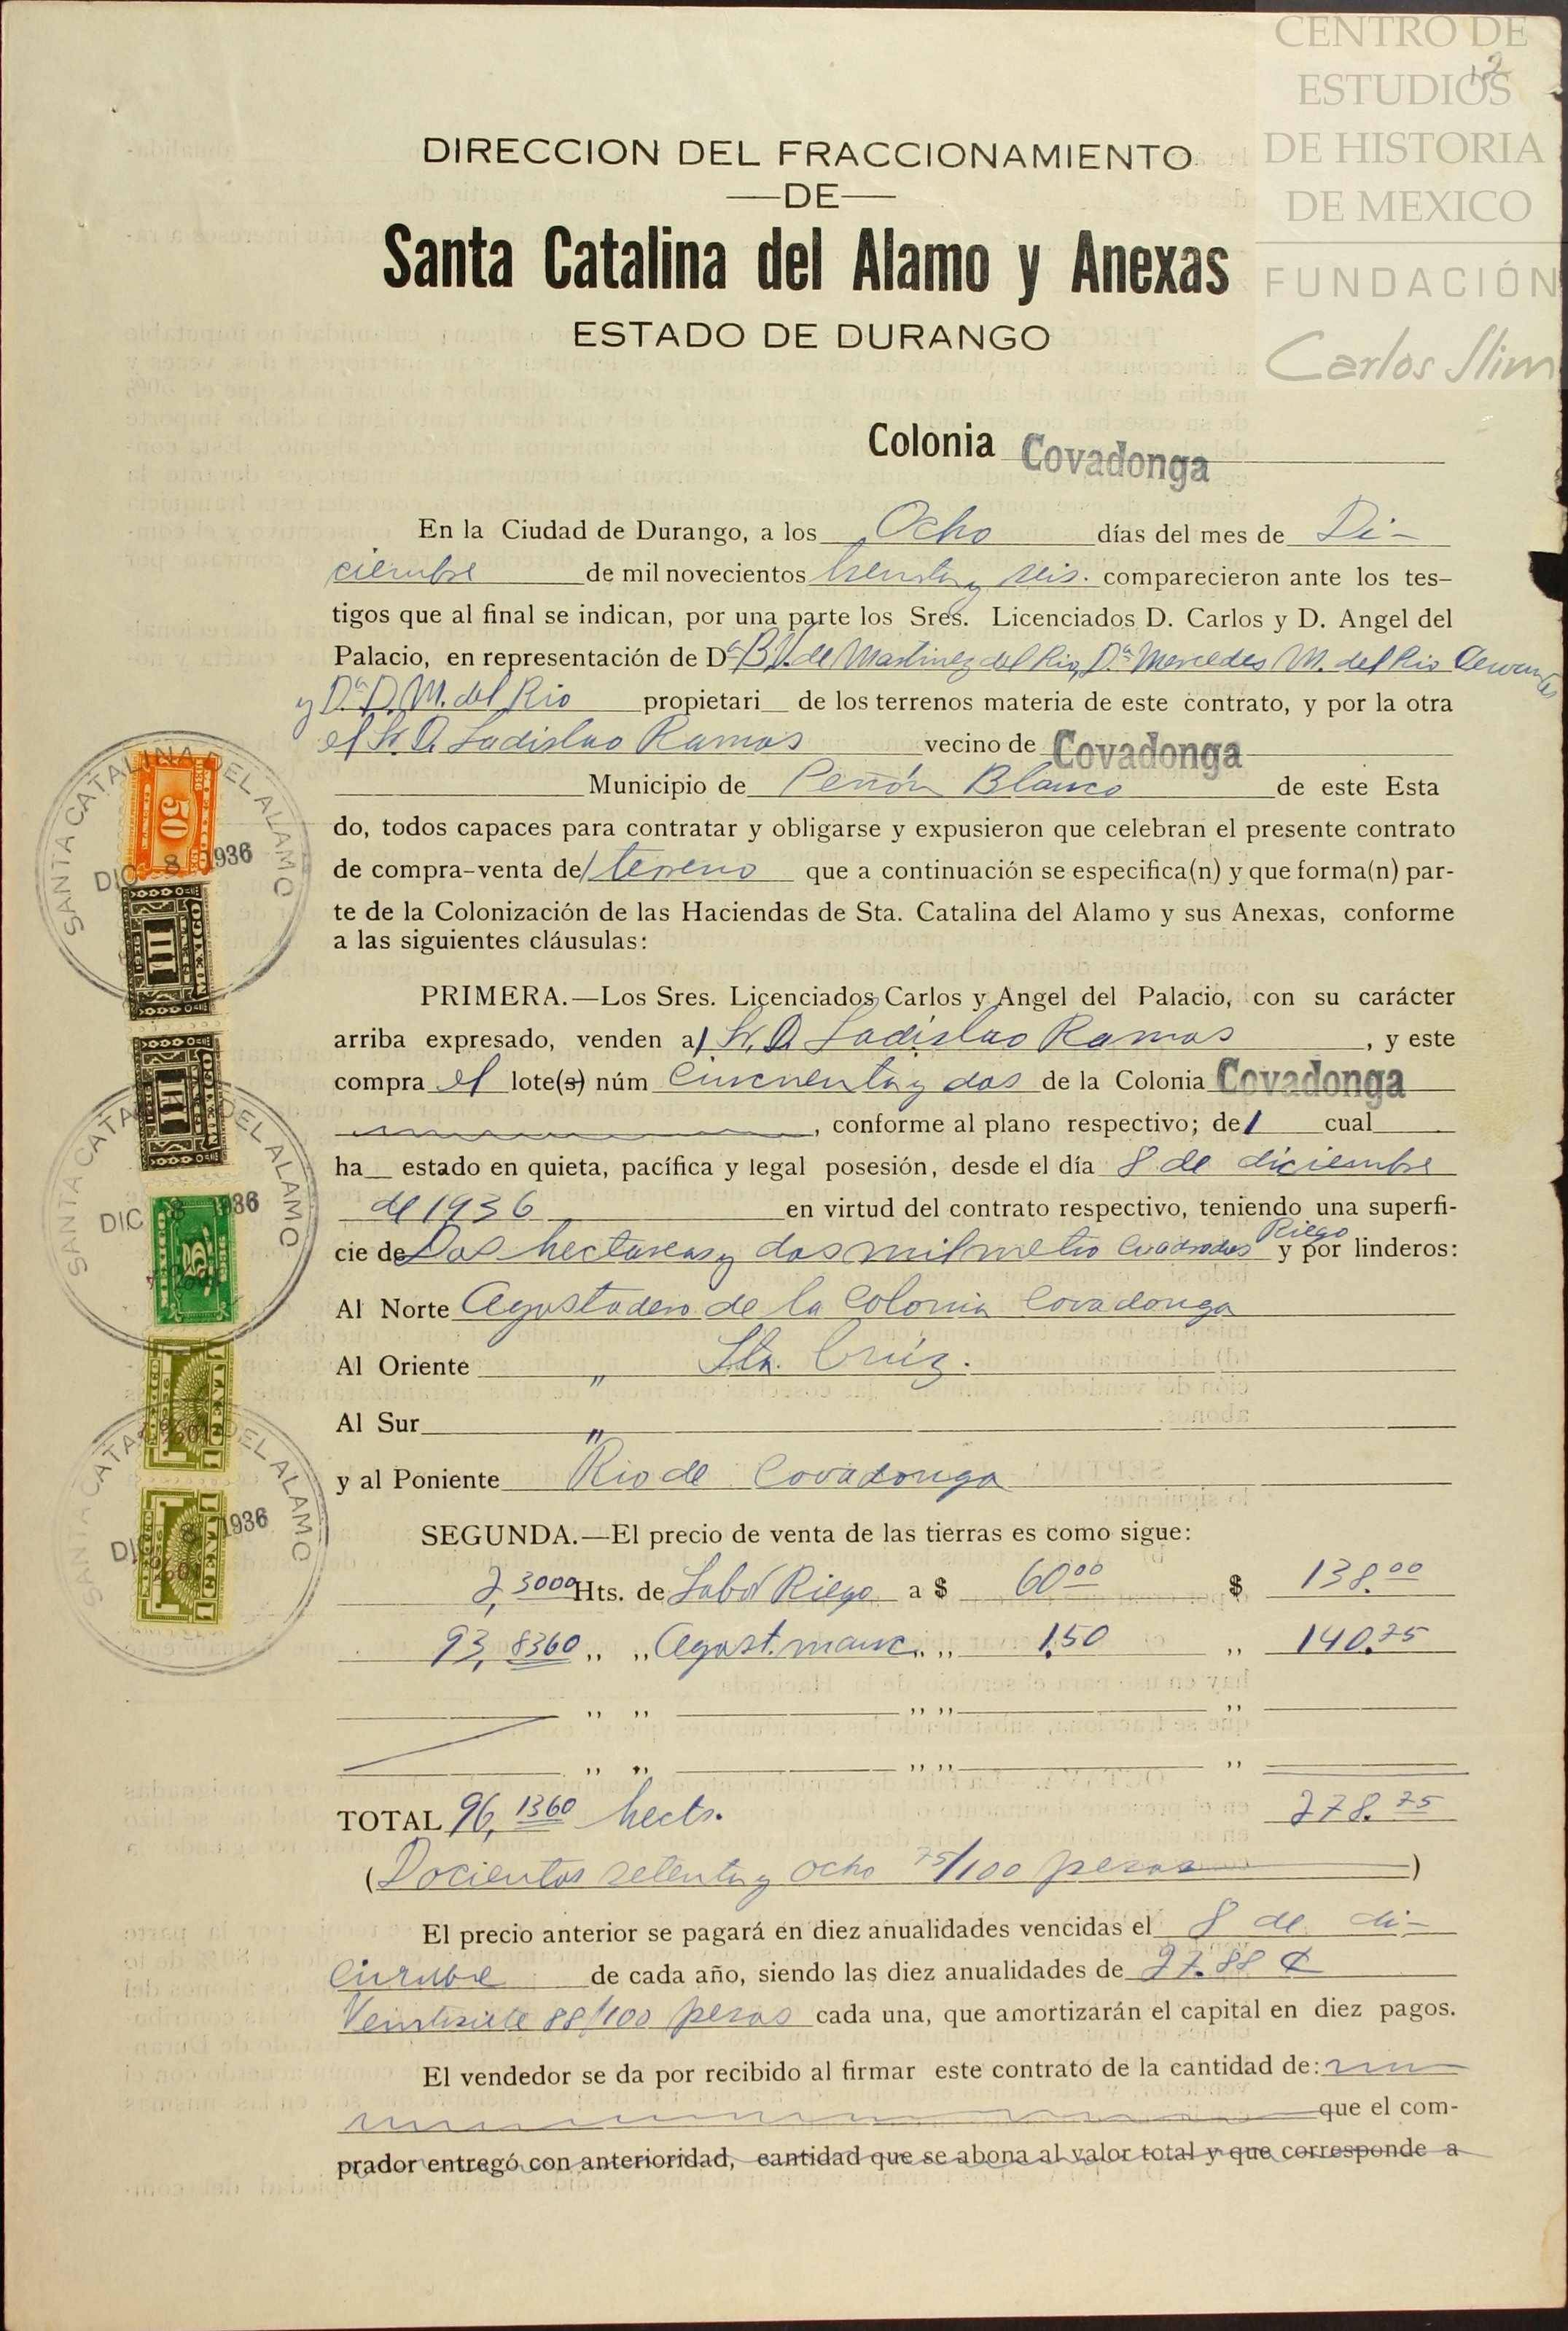 CENTRO DE
ESTUDIOS
DE HISTORIA
DE MEXICO
FUNDACIÓN
Carlos Slim
12
DIRECCION DEL FRACCIONAMIENTO
—DE—
Santa Catalina del Alamo y Anexas
ESTADO DE DURANGO
Colonia Covadonga
En la Ciudad de Durango, a los Ocho días del mes de Di-
ciembre de mil novecientos treinta y seis. comparecieron ante los tes-
tigos que al final se indican, por una parte los Sres. Licenciados D. Carlos y D. Angel del
Palacio, en representación de Dª B. V. de Martinez del Rio, Dª Mercedes M. del Rio Cervantes
y Dª D. M. del Rio propietari__ de los terrenos materia de este contrato, y por la otra
el Sr. D. Ladislao Ramos vecino de Covadonga
Municipio de Peñón Blanco de este Esta
do, todos capaces para contratar y obligarse y expusieron que celebran el presente contrato
de compra-venta del terreno que a continuación se especifica(n) y que forma(n) par-
te de la Colonización de las Haciendas de Sta. Catalina del Alamo y sus Anexas, conforme
a las siguientes cláusulas:
PRIMERA.—Los Sres. Licenciados Carlos y Angel del Palacio, con su carácter
arriba expresado, venden al Sr. D. Ladislao Ramos, y este
compra el lote(s) núm Cincuenta y dos de la Colonia Covadonga
, conforme al plano respectivo; del cual
ha__ estado en quieta, pacífica y legal posesión, desde el día 8 de diciembre
de 1936 en virtud del contrato respectivo, teniendo una superfi-
cie de Dos hectareas y dos mil metro Cuadrados Riego y por linderos:
Al Norte Agostadero de la Colonia Covadonga
Al Oriente „ Sta. Crúz.
Al Sur „
y al Poniente Rio de Covadonga
SEGUNDA.—El precio de venta de las tierras es como sigue:
2,3000 Hts. de Labor Riego a $ 60.00 $ 138.00
93,8360 ,, ,, Agost. manc. ,, ,, 1.50 ,, 140.75
,, ,, ,, ,, ,,
,, ,, ,, ,, ,,
TOTAL 96,1360 hects. 278.75
(Docientos setenta y ocho 75/100 pesos)
El precio anterior se pagará en diez anualidades vencidas el 8 de di-
ciembre de cada año, siendo las diez anualidades de 27.88 ¢
Veintisiete 88/100 pesos cada una, que amortizarán el capital en diez pagos.
El vendedor se da por recibido al firmar este contrato de la cantidad de:
que el com-
prador entregó con anterioridad, cantidad que se abona al valor total y que corresponde a
SANTA CATALINA DEL ALAMO
DIC 8 1936
50
MEXICO
SANTA CATALINA DEL ALAMO
DIC 8 1936
SANTA CATALINA DEL ALAMO
DIC 8 1936